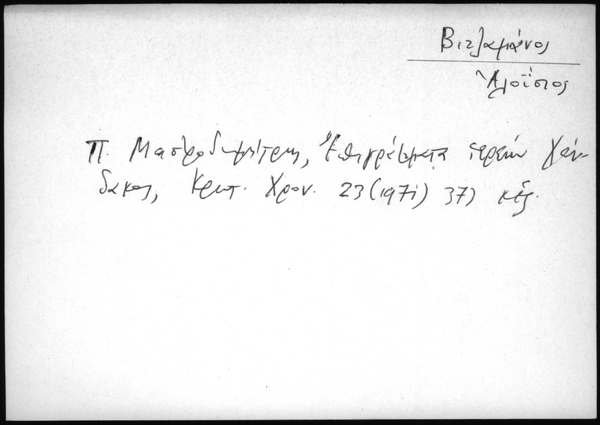 Βιτζαμάνος
Ἀλοΐσιος
Π. Μαστροδημήτρης, Ἐπιγράμματα ἱερέων Χάν-
δακος, Κρητ. Χρον. 23 (1971) 37) κἑξ.